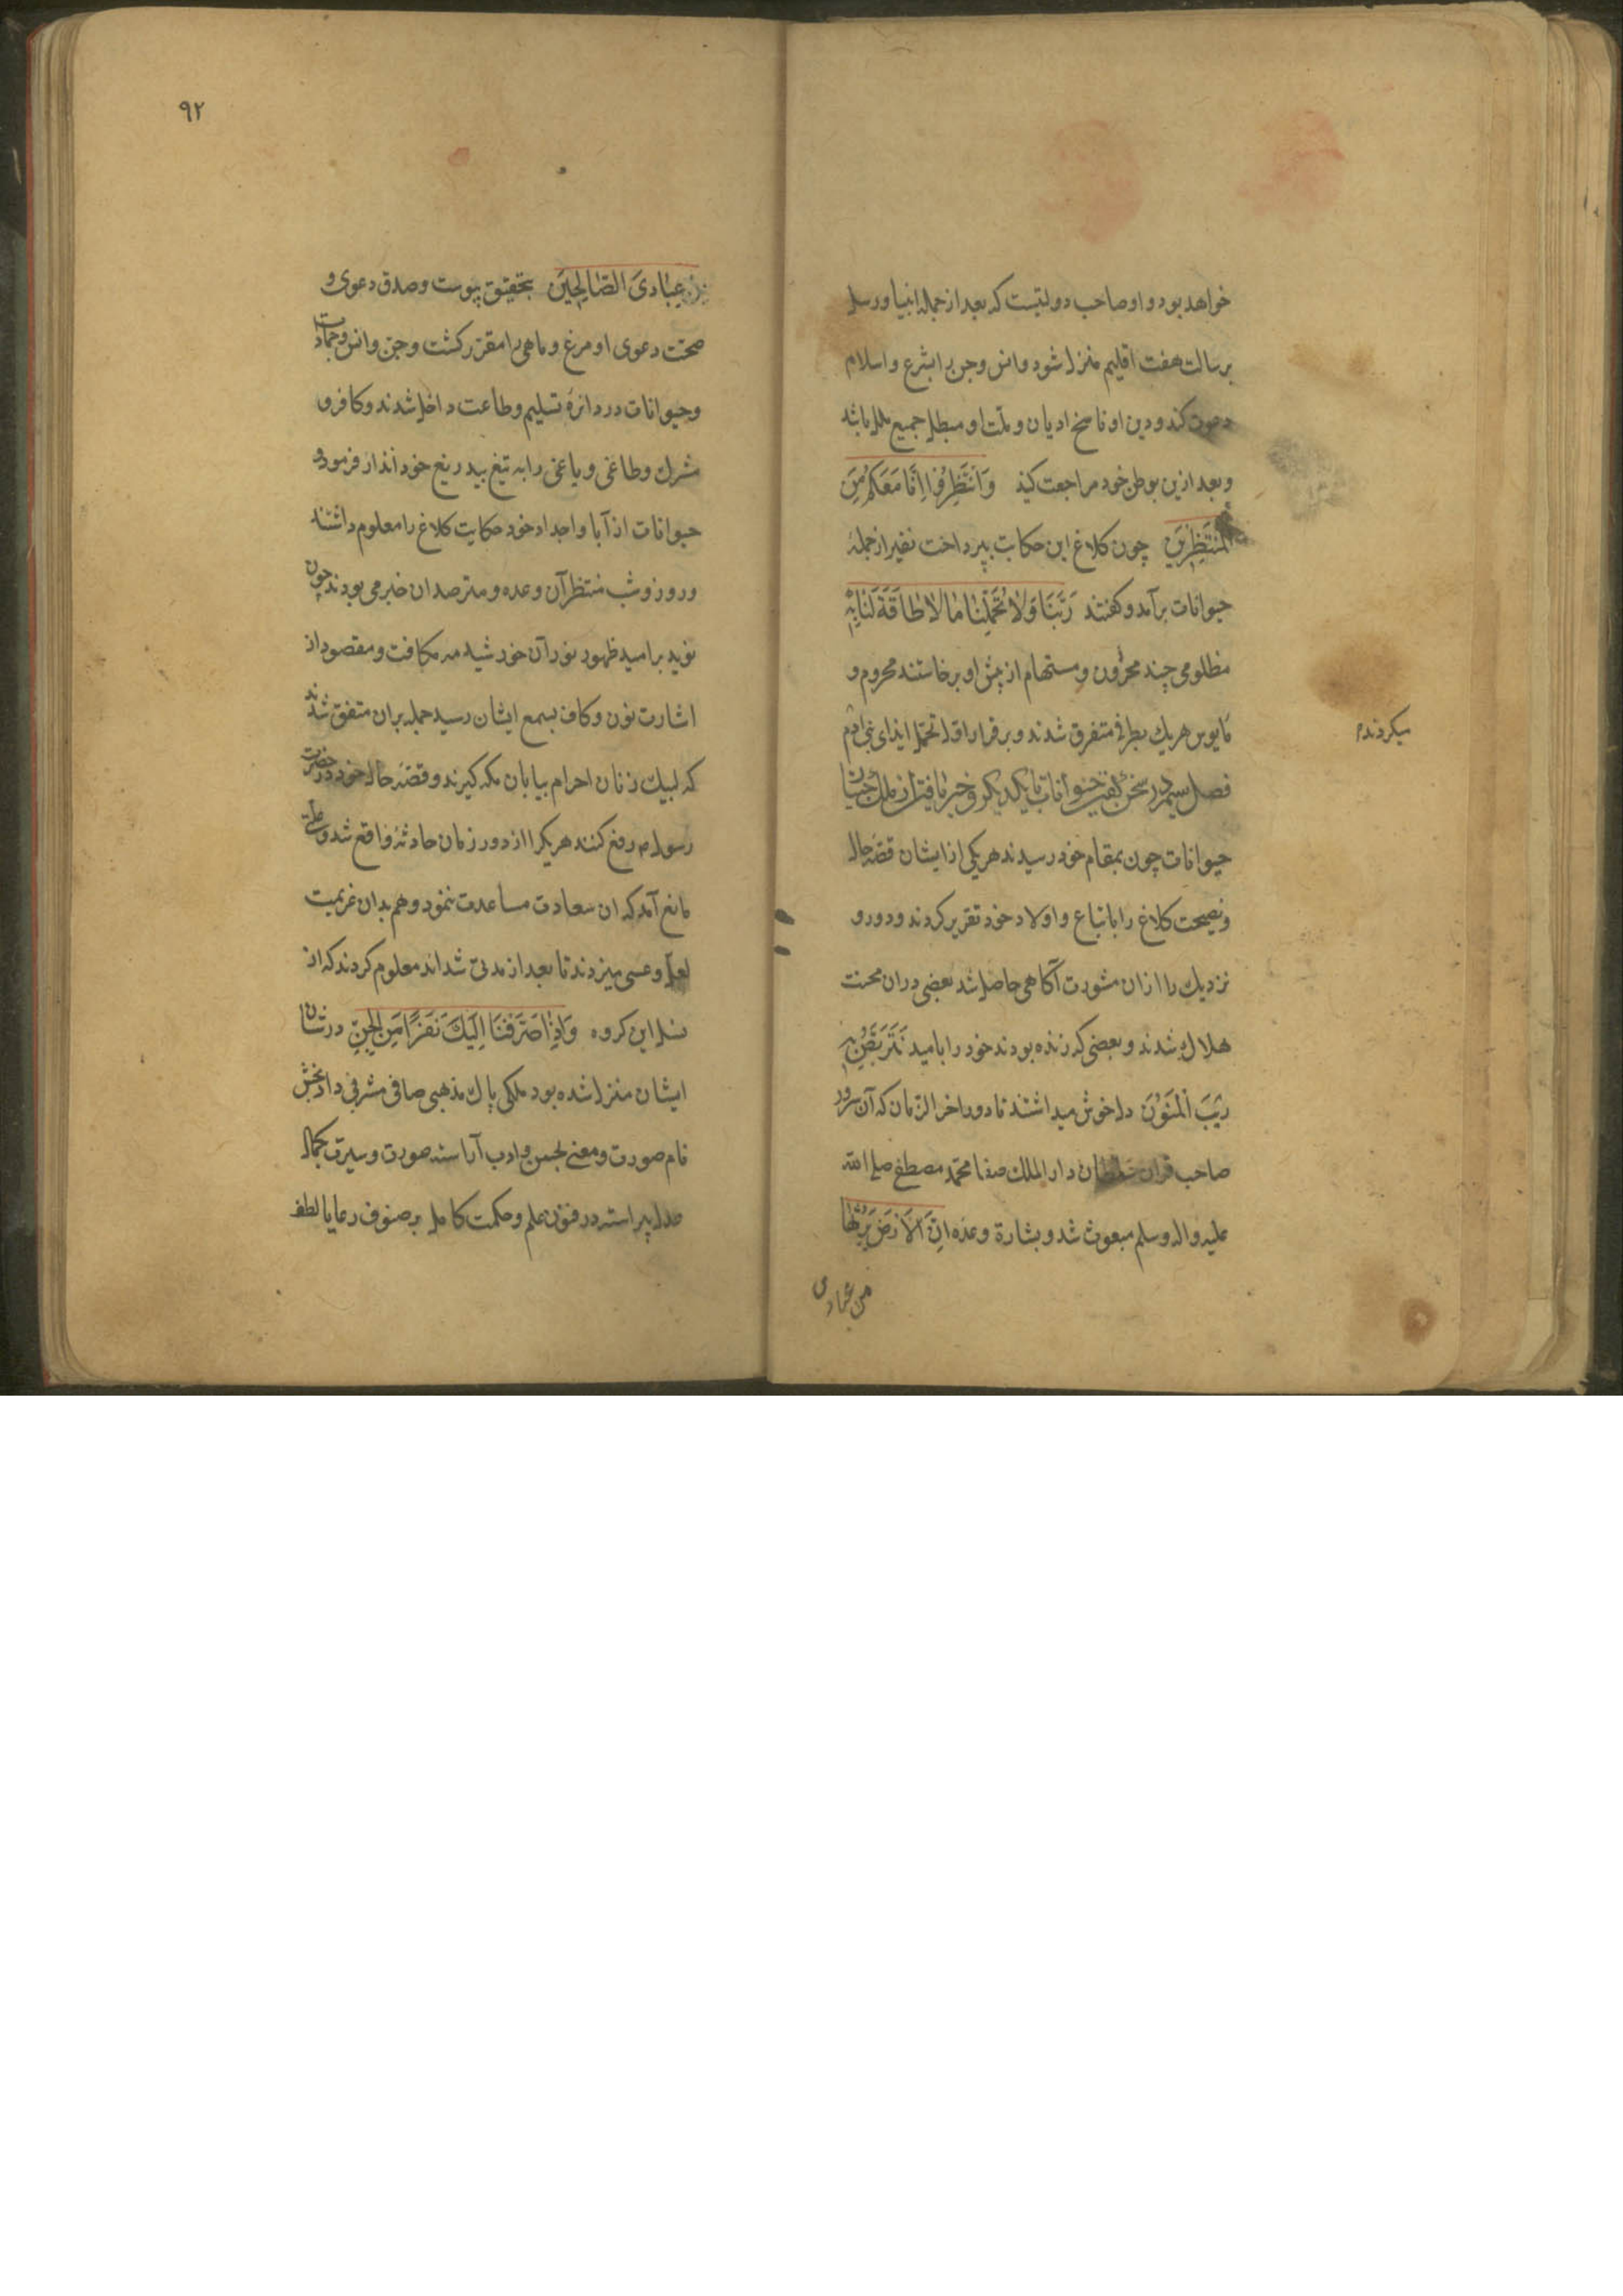 خواهد بود و او صاحب دولتیست که بعد از جمله انبیا و رسل
برسالت هفت اقلیم منزل شود و انس و جن را بشرع و اسلام
دعوت کند و دین او ناسخ ادیان و ملت او مبطل جمیع ملل باشد
و بعد ازین بوطن خود مراجعت کنید وَانْتَظِرُوا اِنَّا مَعَكُمْ مِنَ
الْمُنتَظِرِينَ چون کلاغ این حکایت بپرداخت نفیر از جملهٔ
حیوانات برآمد و کفتند رَبَّنَا وَلَا تُحَمِّلْنَا مَا لَا طَاقَةَ لَنَا بِهِ
مظلومی چند محزون و مستهام از پیش او برخاستند محروم و
مایوس هریك بطرفی متفرق شدند و برقرار اول تحمل ایذای بنی ادم
میکردند
فصل سیم در سخن کفتن حیوانات با یکدیکر و خبر یافتن از ملك جنیان
حیوانات چون بمقام خود رسیدند هریکی از ایشان قصه حال
و نصیحت کلاغ را باتباع و اولاد خود تقریر کردند و دور و
نزدیك را ازان مشورت آکاهی حاصل شد بعضی دران محنت
هلاك شدند و بعضی که زنده بودند خود را بامید نَتَرَبَّصُ بِهِ
رَيْبَ الْمَنُونِ دل خوش میداشتند تا دور اخر الزمان که آن سرور
صاحب قران سلطان دار الملك صفا محمد مصطفی صلی الله
علیه واله وسلم مبعوث شد و بشارة وعده اِنَّ الْاَرْضَ يَرِثُهَا
من عبادی
۹۲
عِبَادِىَ الصَّالِحِينَ بتحقیق پیوست و صدق دعوی و
صحت دعوی او مرغ و ماهی را مقرر کشت و جن و انس و جمادات
و حیوانات در دائرهٔ تسلیم و طاعت داخل شدند و کافر و
مشرك و طاغی و یاغی را به تیغ بیدریغ خود انذار فرمود و
حیوانات از آبا و اجداد خود حکایت کلاغ را معلوم داشتند
و روز و شب منتظر آن وعده و مترصد ان خبر می بودند چون
نوید بر امید ظهور نور آن خورشید مه مکافت و مقصود از
اشارت نون و کاف بسمع ایشان رسید جمله بران متفق شدند
که لبیك زنان احرام بیابان مکه کیرند و قصه حال خود در حضرت
رسول م رفع کنند هریکرا از دور زمان حادثهٔ واقع شد و علتی
مانع آمد که ان سعادت مساعدت ننمود و هم بدان عزیمت
لعل و عسی میزدند تا بعد از مدتی شداند معلوم کردند که از
نسل این کروه وَاِذْ صَرَفْنَا اِلَيْكَ نَفَرًا مِنَ الْجِنِّ در شان
ایشان منزل شده بود ملکی پاك مذهبی صافی مشرفی داد بخش
نام صورت و معنی بحسن و ادب آراسته صورت و سیرت بکمال
عدل پیراسته در فنون علم و حکمت کامل بر صنوف رعایا لطف